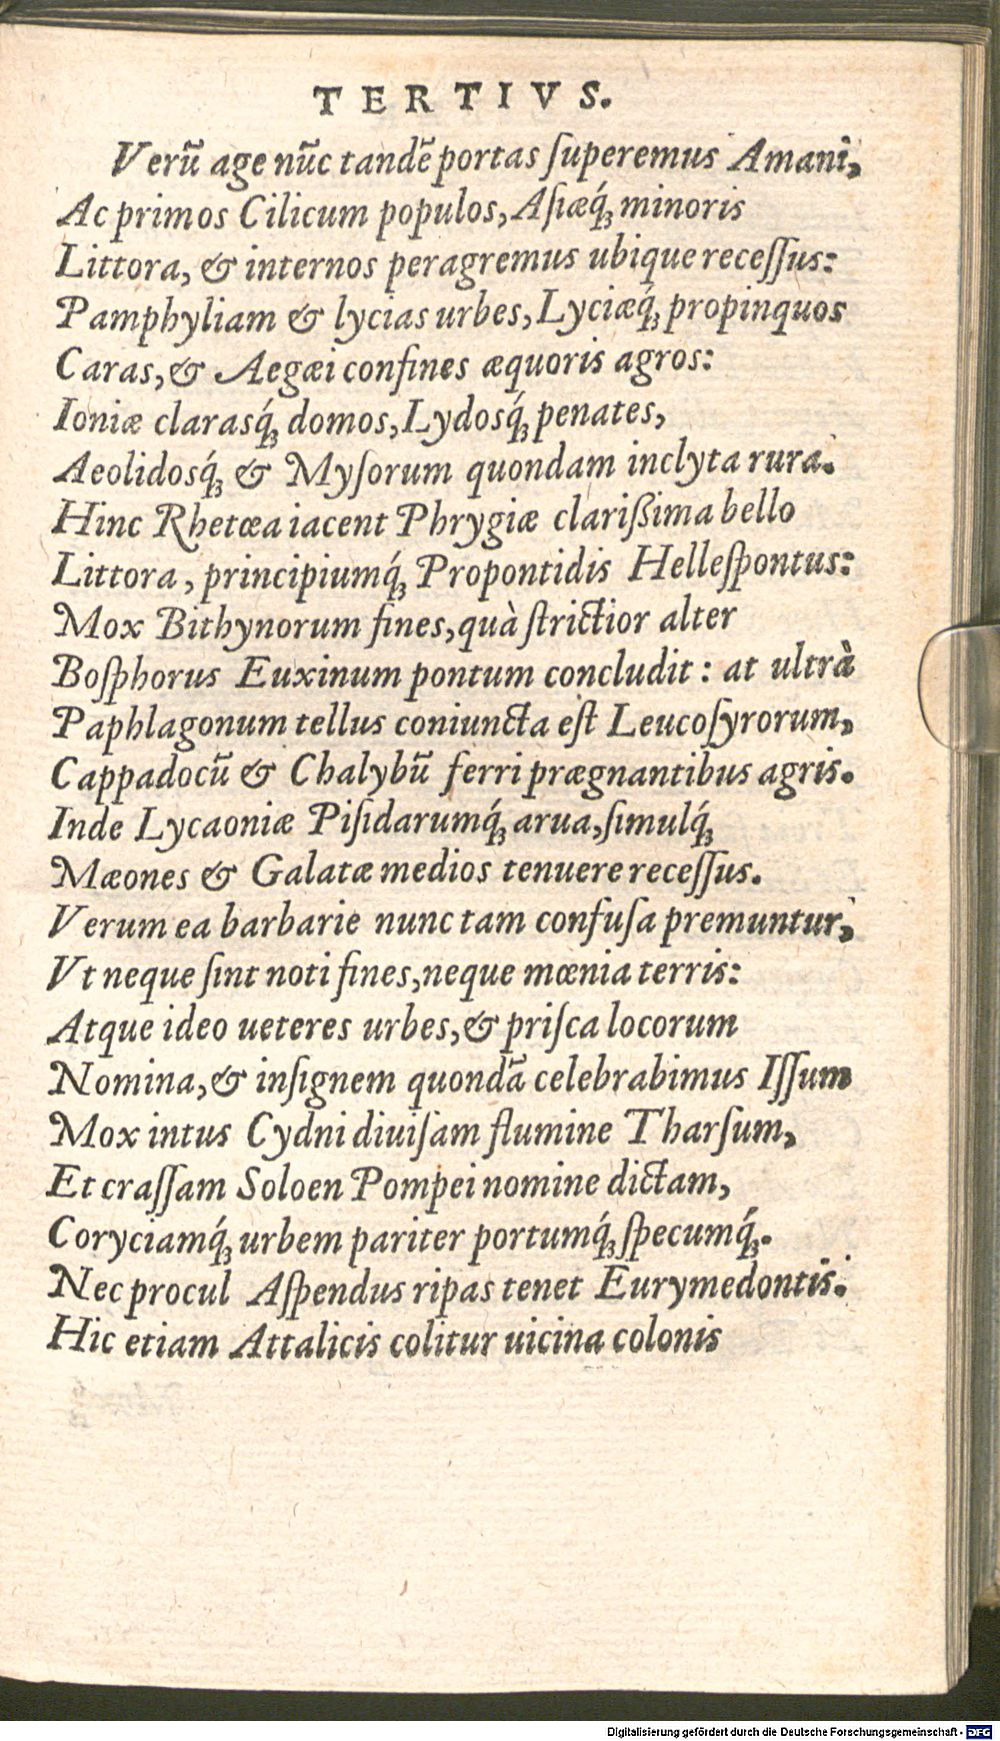 TERTIVS.
Verũ age nũc tandẽ portas ſuperemus Amani,
Ac primos Cilicum populos, Aſiæq́ꝫ minoris
Littora, & internos peragremus ubique receſſus:
Pamphyliam & lycias urbes, Lyciæq́ꝫ propinquos
Caras, & Aegæi confines æquoris agros:
Ioniæ clarasq́ꝫ domos, Lydosq́ꝫ penates,
Aeolidosq́ꝫ & Myſorum quondam inclyta rura.
Hinc Rhetœa iacent Phrygiæ clariſsima bello
Littora, principiumq́ꝫ Propontidis Helleſpontus:
Mox Bithynorum fines, quà ſtrictior alter
Boſphorus Euxinum pontum concludit: at ultrà
Paphlagonum tellus coniuncta eſt Leucoſyrorum,
Cappadocũ & Chalybũ ferri prægnantibus agris.
Inde Lycaoniæ Piſidarumq́ꝫ arua, ſimulq́ꝫ
Mæones & Galatæ medios tenuere receſſus.
Verum ea barbarie nunc tam confuſa premuntur,
Vt neque ſint noti fines, neque mœnia terris:
Atque ideo ueteres urbes, & priſca locorum
Nomina, & inſignem quondã celebrabimus Iſſum
Mox intus Cydni diuiſam flumine Tharſum,
Et craſſam Soloen Pompei nomine dictam,
Coryciamq́ꝫ urbem pariter portumq́ꝫ ſpecumq́ꝫ.
Nec procul Aſpendus ripas tenet Eurymedontis.
Hic etiam Attalicis colitur uicina colonis
Digitalisierung gefördert durch die Deutsche Forschungsgemeinschaft - DFG